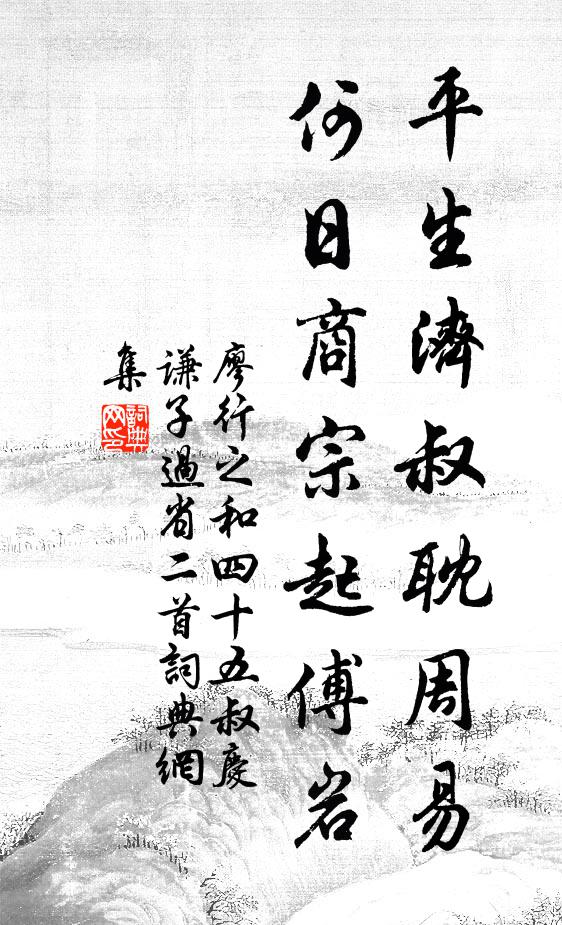 平生濟叔耽周易
何日商宗起傅岩
廖行之和四十五叔慶
謙子過省二首詞典網
集
詞典
网印